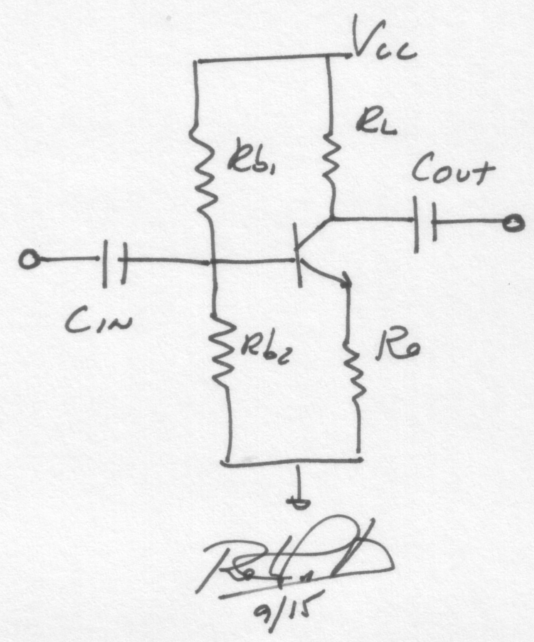 Vcc
RL
Rb1
Cout
CIN
Rb2
Re
9/15